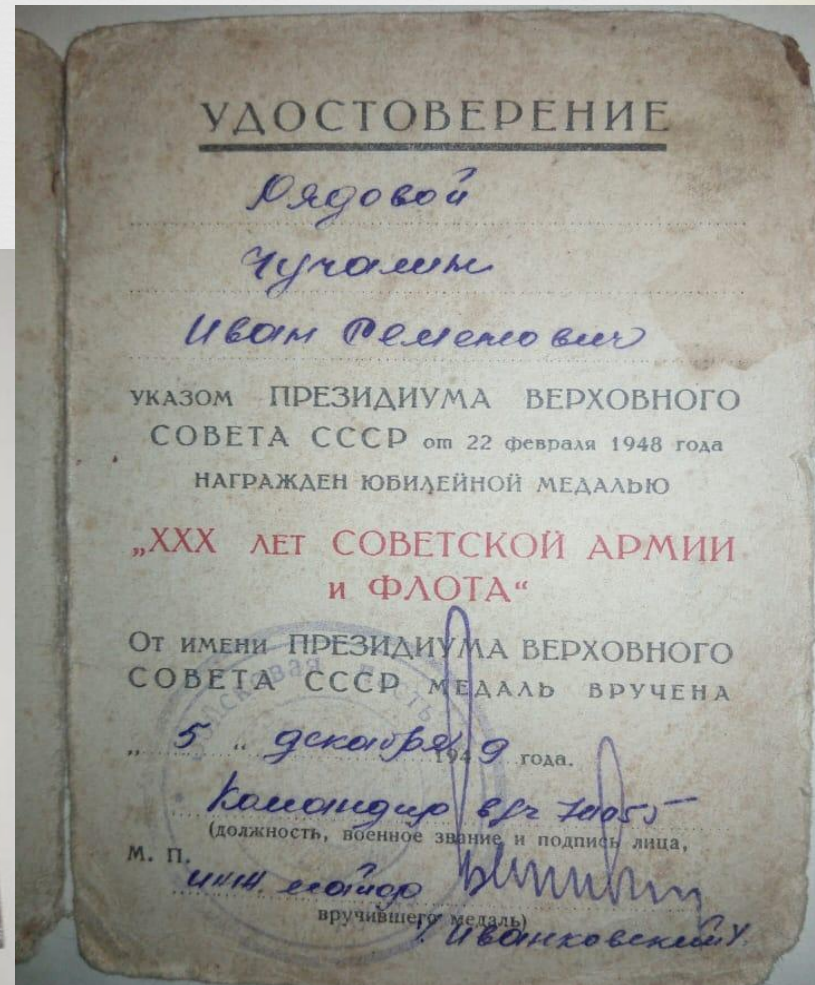 УДОСТОВЕРЕНИЕ
Рядовой
Чучалин
Иван
УКАЗОМ ПРЕЗИДИУМА ВЕРХОВНОГО
СОВЕТА СССР от 22 февраля 1948 года
НАГРАЖДЕН ЮБИЛЕЙНОЙ МЕДАЛЬЮ
„XXX ЛЕТ СОВЕТСКОЙ АРМИИ
и ФЛОТА“
ОТ ИМЕНИ ПРЕЗИДИУМА ВЕРХОВНОГО
СОВЕТА СССР МЕДАЛЬ ВРУЧЕНА
„ 5 “ декабря 1949 года.
Командир в/ч
(должность, военное звание и подпись лица,
М. П.
инж майор
вручившего медаль)
Иванковский
войсковая часть